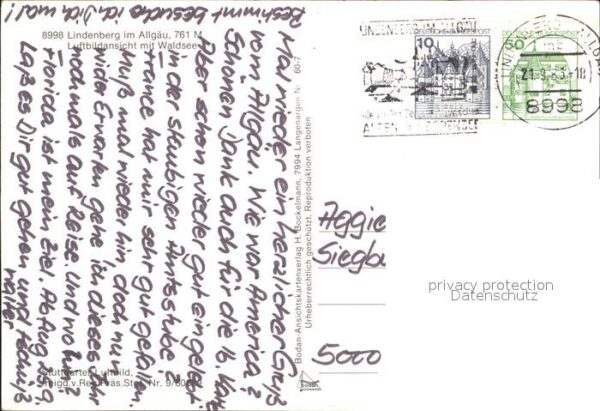 Bestimmt besuche ich Dich mal!
8998 Lindenberg im Allgäu, 761 M
Luftbildansicht mit Waldsee
Mal wieder ein herzlicher Gruß
vom Allgäu. Wie war America?
Schönen Dank auch für die lb. Karte
Aber schon wieder gut eingelebt
in der staubigen Amtsstube?
France hat mir sehr gut gefallen.
Muß mal wieder hin doch nun
wider Erwarten gehe ich dieses Jahr
nochmals auf Reise. Und wohin?
Florida is mein Ziel Anfang
Laß es Dir gut gehen und
weiter
Stuttgarter Luftbild,
Freigg.v.Reg.Präs.Stgt. Nr. 9/60882
60-7
Bodan-Ansichtskartenverlag H. Bockelmann, 7994 Langenargen N
Urheberrechtlich geschützt, Reproduktion verboten
LINDENBERG IM ALLGÄU
DEUTSCHE BUNDESPOST
10
50
21.9.83-18
8998
Aggie
Siegbu
5000
privacy protection
Datenschutz